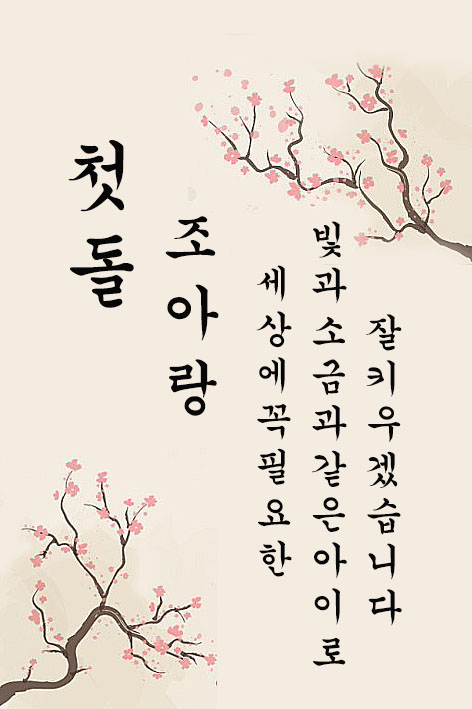 첫돌
조아랑
세상에꼭필요한
빛과소금과같은아이로
잘키우겠습니다